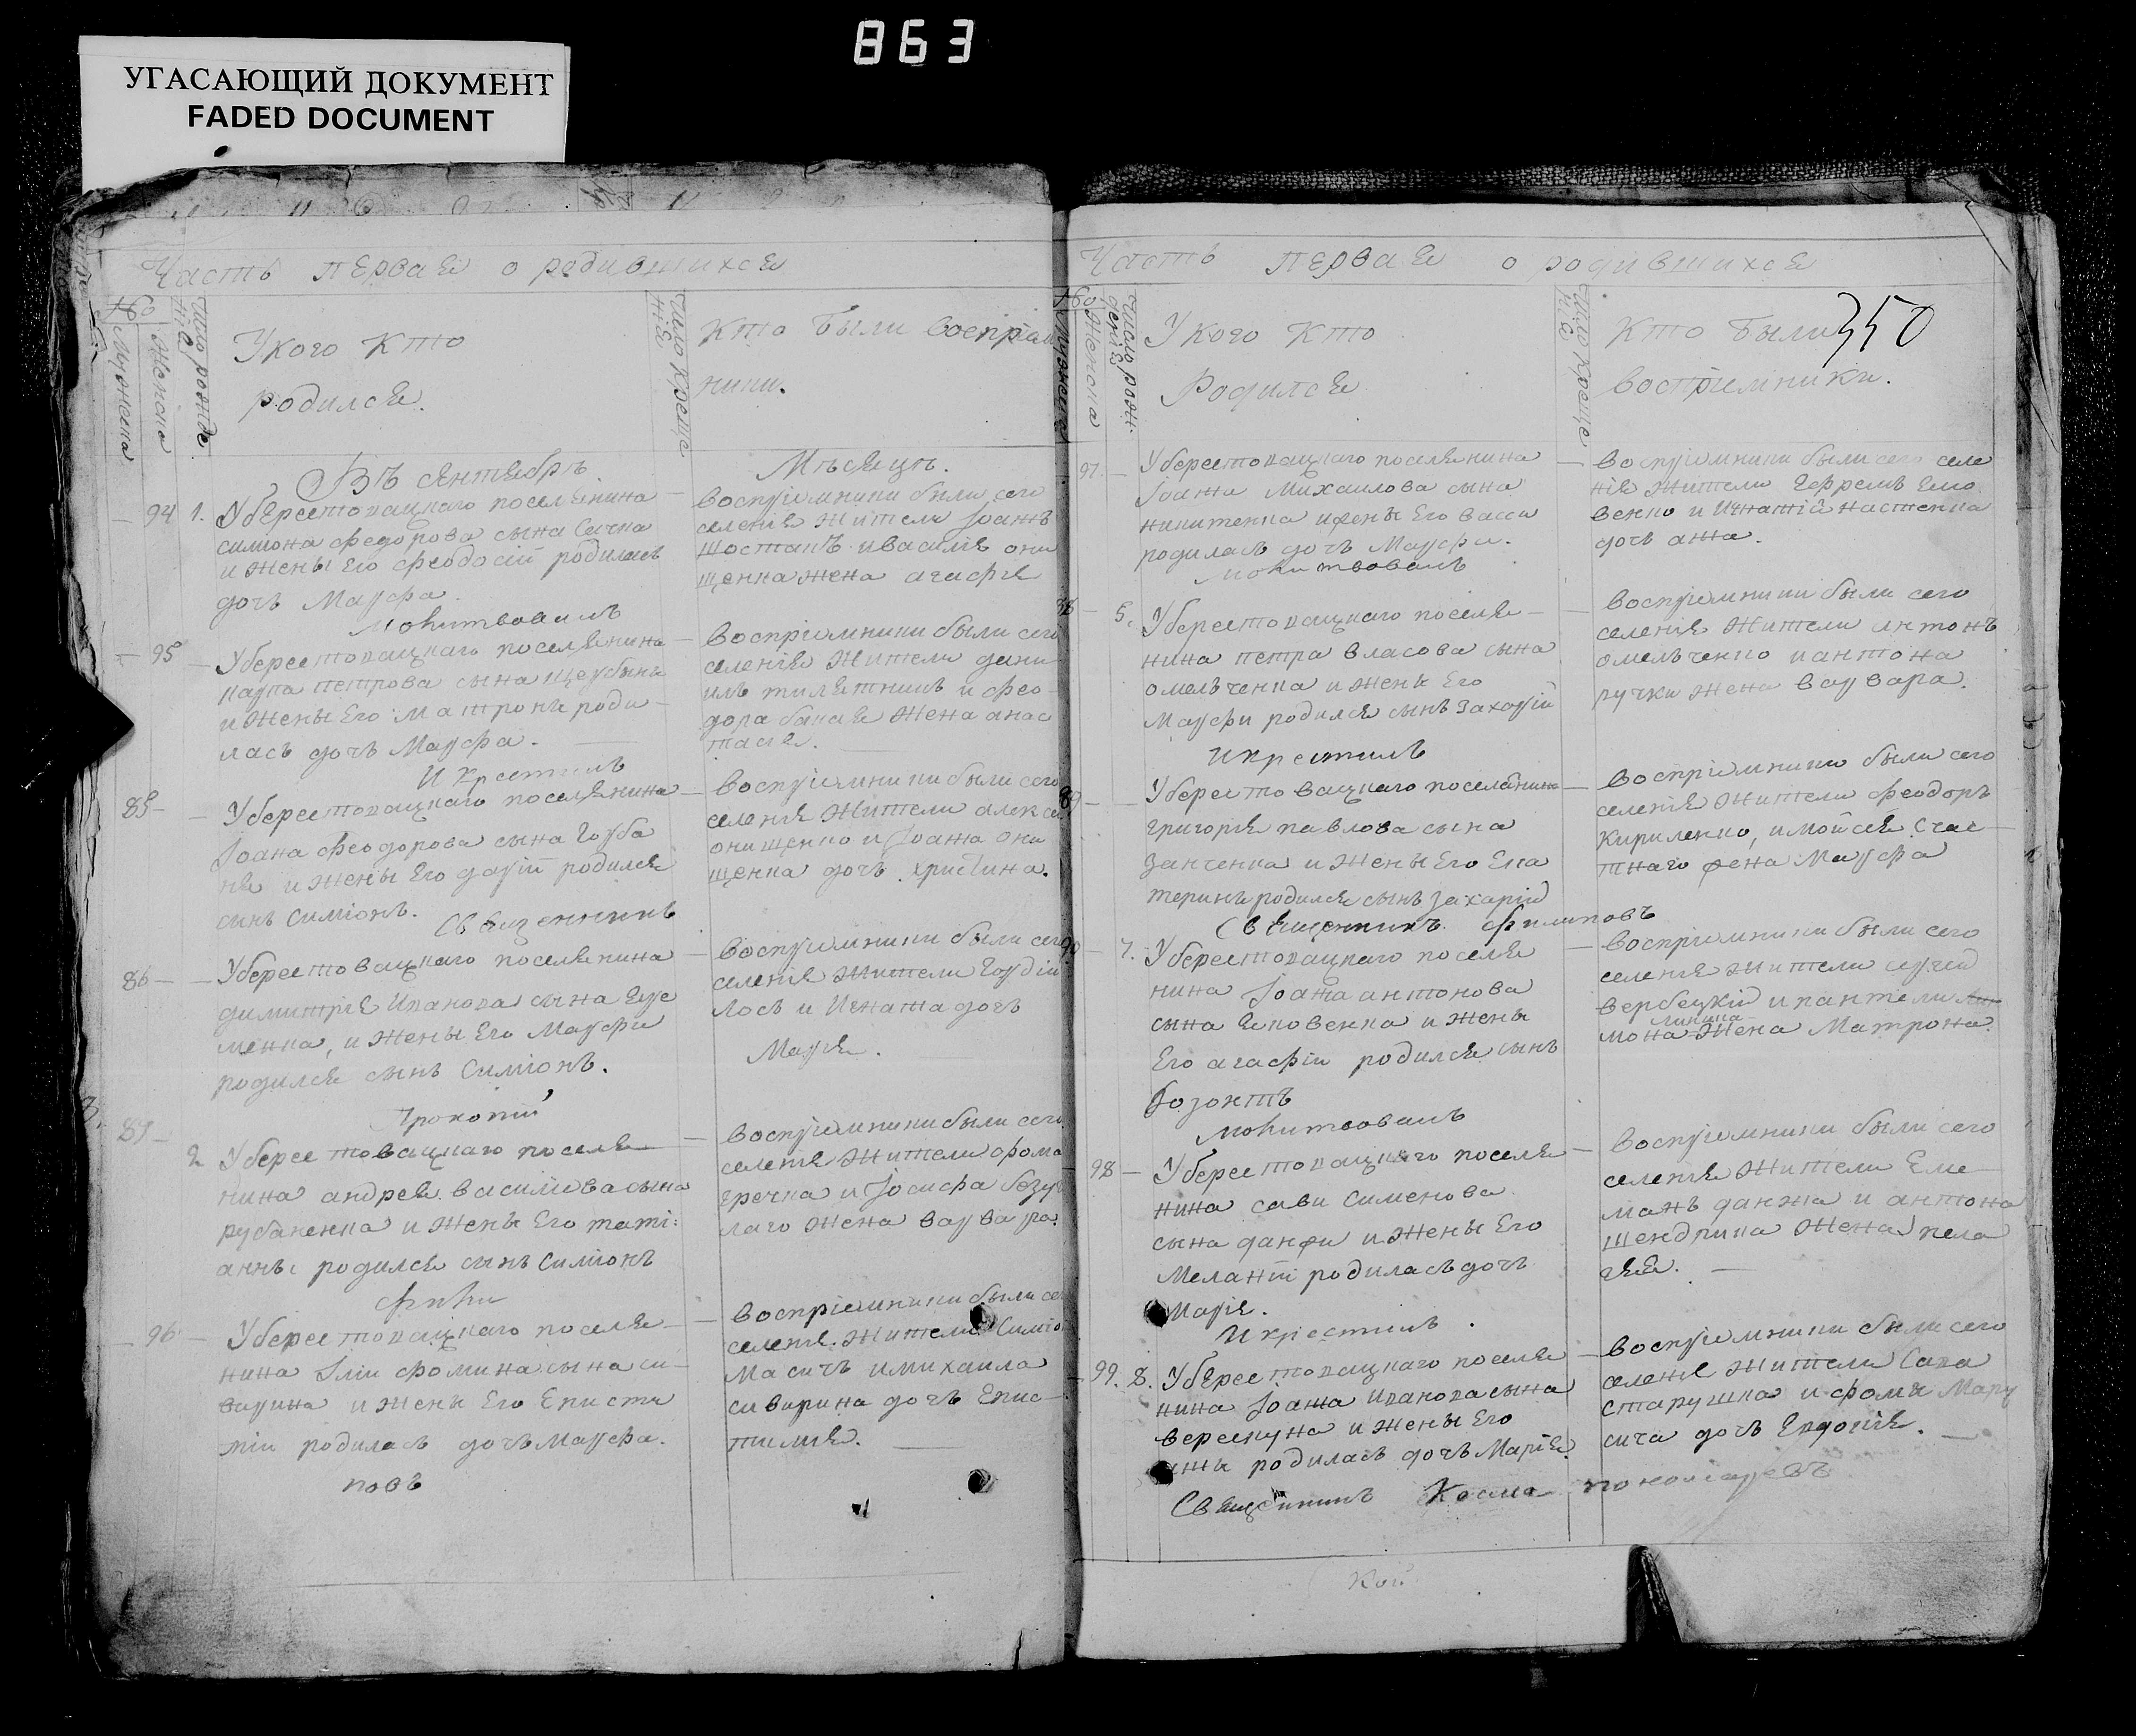 863
УГАСАЮЩИЙ ДОКУМЕНТ
FADED DOCUMENT
Часть первая о родившихся
Мужеска
Женска
Число рожде
нія
У кого кто
родился.
Число креще
нія
Кто были воспріем
ники.
Въ сентябрѣ
Мѣсяцѣ.
94 1. У берестовацкаго поселянина
симіона федорова сына Сачка
и жены его феодосіи родилась
дочь Марфа.
воспріемники были сего
селенія жители Іоаннъ
шостакъ и василія они
щенка жена агафія
молитвовалъ
95 У берестовацкаго поселянина
карпа петрова сына
и жены его матроны роди
лась дочь Марфа.
воспріемники были сего
селенія жители дани
илъ и фео
дора жена анас
тасія.
и крестилъ
85 У берестовацкаго поселянина
Іоана феодорова сына
и жены его даріи родился
сынъ симіонъ.
воспріемники были сего
селенія жители алексей
онищенко и Іоанна они
щенка дочь христина.
Священникъ
86 У берестовацкаго поселянина
димитрія иванова сына
менка, и жены его Марфы
родился сынъ симіонъ.
воспріемники были сего
селенія жители
лось и игната дочь
Марія.
Прокопій
87 2 У берестовацкаго поселя
нина андрея василіева сына
рубаненка и жены его таті:
анны родился сынъ симіонъ
воспріемники были сего
селенія жители фома
гречка и Іосифа
лаго жена варвара.
фили
96 У берестовацкаго поселя
нина Іліи фомина сына си
варина и жены его епісти
міи родилась дочь Марфа.
воспріемники были сего
селенія жители симіо
масичъ и михаила
сиварина дочь епис
тимія.
повъ
Часть первая о родившихся
350
Мужеска
Женска
Число рож
денія
У кого кто
Родился
Число креще
нія
Кто были
воспріемники.
97. У берестовацкаго поселянина
Іоанна Михаилова сына
никитенка и жены его васси
родилась дочь Марфа.
воспріемники были сего селе
нія жители
венко и игнатій настенка
дочь анна.
молитвовалъ
88 5. У берестовацкаго поселя
нина петра власова сына
омельченка и жены его
Марфы родился сынъ захарій
воспріемники были сего
селенія жители антонъ
омельченко и антона
ручки жена варвара.
и крестилъ
89 У берестовацкаго поселянина
григорія павлова сына
занченка и жены его ека
терины родился сынъ захарій
воспріемники были сего
селенія жители феодоръ
кириленко, и мойсея счас
тнаго жена Марфа
Священникъ филиповъ
90 7. У берестовацкаго поселя
нина Іоанна антонова
сына яковенка и жены
его агафіи родился сынъ
Созонтъ
воспріемники были сего
селенія жители сергей
вербецкій и пантели
мона жена Матрона.
молитвовалъ
98 У берестовацкаго поселя
нина сави сименова
сына данжи и жены его
меланіи родилась дочь
Марія.
воспріемники были сего
селенія жители еме
лянъ данжа и антона
шендрика жена пела
гея.
и крестилъ
99. 8. У берестовацкаго поселя
нина Іоанна иванова сына
верескуна и жены его
анны родилась дочь Марія.
воспріемники были сего
селенія жители сава
старушка и фомы Мару
сича дочь евдокія.
Священникъ Косма пономаревъ
Кой